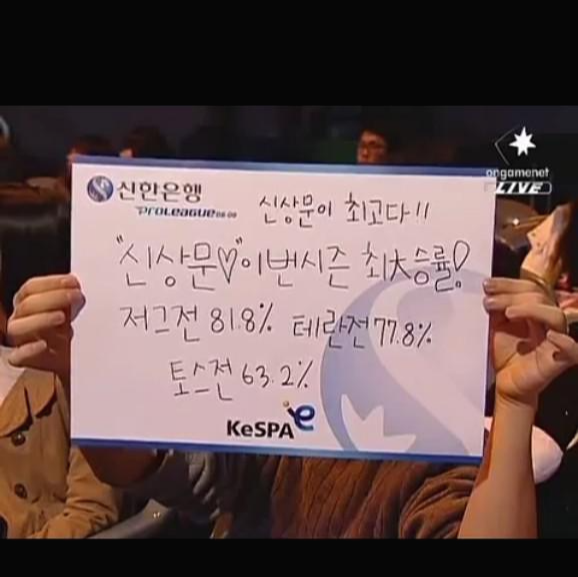 ongamenet
LIVE
신한은행
PROLEAGUE 08-09
신상문이 최고다!!
"신상문♡"이번시즌 최大승률!
저그전 81.8% 테란전 77.8%
토스전 63.2%
KeSPA e